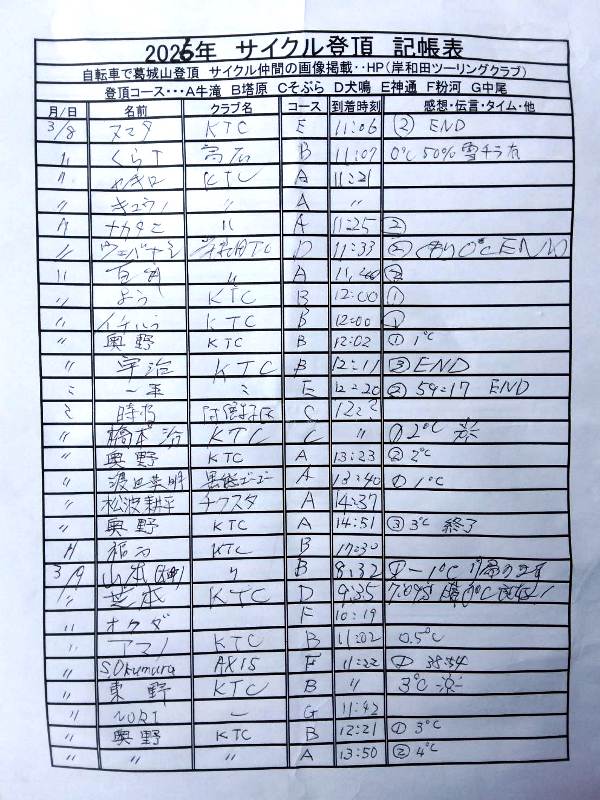 2026年 サイクル登頂 記帳表
自転車で葛城山登頂 サイクル仲間の画像掲載‥HP（岸和田ツーリングクラブ）
登頂コース・・・A牛滝 B塔原 Cそぶら D犬鳴 E神通 F粉河 G中尾
月/日 名前 クラブ名 コース 到着時刻 感想・伝言・タイム・他
3/8 ヌマタ KTC E 11:06 ② END
〃 くらT 高石 B 11:07 0℃ 50%
〃 KTC A 11:21
〃 キュウノ 〃 A 〃
〃 ナカタニ 〃 A 11:25 ②
〃 D 11:33 0℃ END
〃 〃 A ②
〃 よう KTC B 12:00 ①
〃 KTC B 12:00 ①
〃 奥野 KTC B 12:02 ① 1℃
〃 宇治 KTC B 12:11 ③ END
〃 〃 E 12:20 ② 59:17 END
〃 C
〃 橋本 治 KTC C 〃 ① 2℃
〃 奥野 KTC A 13:23 ② 2℃
〃 A 13:40 ① 1℃
〃 松波耕平 チワスタ A 14:37
〃 奥野 KTC A 14:51 ③ 3℃ 終了
〃 KTC B 17:30
3/9 山本 〃 B 8:32 ① -1℃
〃 芝本 KTC D 9:35
〃 オクダ F 10:19
〃 アマノ KTC B 11:02 0.5℃
〃 S.Okumura AX15 F 11:22 ① 38:54
〃 東野 KTC B 〃 3℃
〃 NORI G 11:42
〃 奥野 KTC B 12:21 ① 3℃
〃 〃 〃 A 13:50 ② 4℃